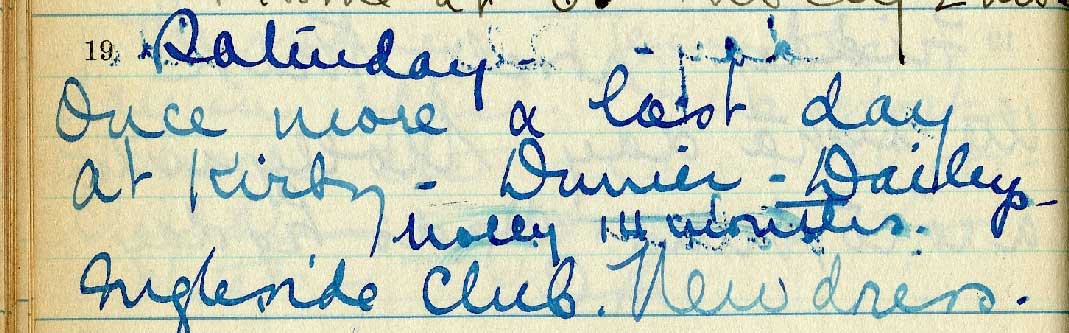 19 Saturday -
Once more a last day
at Kirby - Dinner - Daileys -
Molly 14 months.
Ingleside Club. New dress.